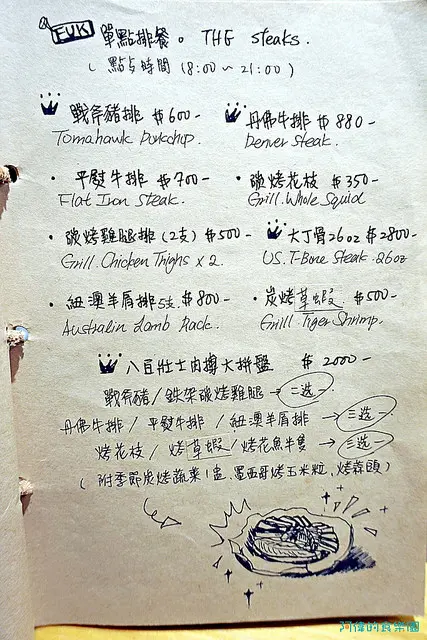 FUK 單點排餐。 THE steaks.
(點餐時間 18:00~21:00)
戰斧豬排 $600-
Tomahawk Porkchop.
丹佛牛排 $880-
Denver Steak.
平熨牛排 $700-
Flat Iron Steak.
碳烤花枝 $350-
Grill.Whole Squid
碳烤雞腿排(2支) $500-
Grill.Chicken Thighs x 2.
大丁骨26oz $2800-
US.T-Bone Steak 26oz
紐澳羊肩排5支 $800-
Australin Lamb Rack.
炭烤草蝦 $500-
Grill.Tiger Shrimp.
八百壯士肉搏大拼盤 $2000-
戰斧豬/鉄架碳烤雞腿→二选一
丹佛牛排/平熨牛排/紐澳羊肩排→三选一
烤花枝/烤草蝦/烤花魚半隻→三选一
(附季節炭烤蔬菜1盅、墨西哥烤玉米粒、烤蒜頭)
阿偉的食樂園